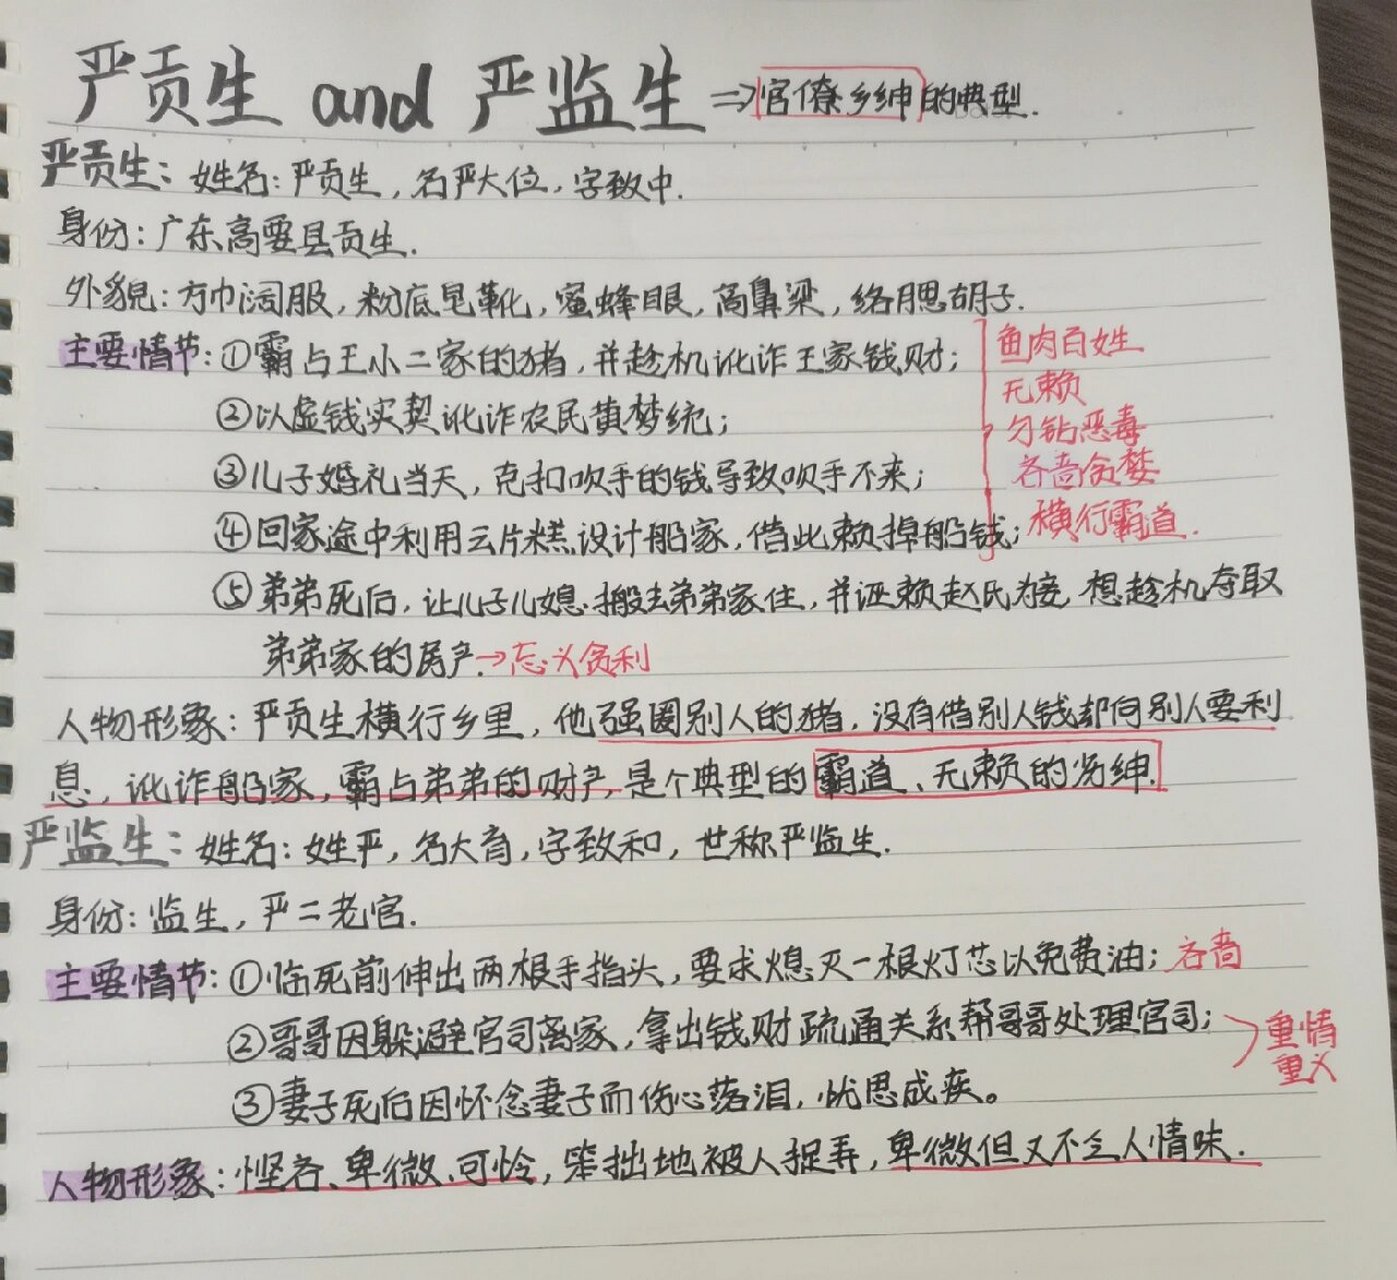 严贡生 and 严监生 ⇒官僚乡绅的典型.
严贡生: 姓名: 严贡生, 名严大位, 字致中.
身份: 广东高要县贡生.
外貌: 方巾阔服, 粉底皂靴, 蜜蜂眼, 高鼻梁, 络腮胡子.
主要情节: ①霸占王小二家的猪, 并趁机讹诈王家钱财;
鱼肉百姓
无赖
②以虚钱实契讹诈农民黄梦统;
刁钻恶毒
③儿子婚礼当天, 克扣吹手的钱导致吹手不来;
吝啬贪婪
④回家途中利用云片糕设计船家, 借此赖掉船钱;
横行霸道.
⑤弟弟死后, 让儿子儿媳搬去弟弟家住, 并诬赖赵氏为妾, 想趁机夺取
弟弟家的房产.→忘义贪利
人物形象: 严贡生横行乡里, 他强圈别人的猪, 没有借别人钱却向别人要利
息, 讹诈船家, 霸占弟弟的财产, 是个典型的霸道、无赖的劣绅.
严监生: 姓名: 姓严, 名大育, 字致和, 世称严监生.
身份: 监生, 严二老官.
主要情节: ①临死前伸出两根手指头, 要求熄灭一根灯芯以免费油; 吝啬
②哥哥因躲避官司离家, 拿出钱财疏通关系帮哥哥处理官司;
重情
重义
③妻子死后因怀念妻子而伤心落泪, 忧思成疾。
人物形象: 悭吝、卑微、可怜, 笨拙地被人捉弄, 卑微但又不乏人情味.